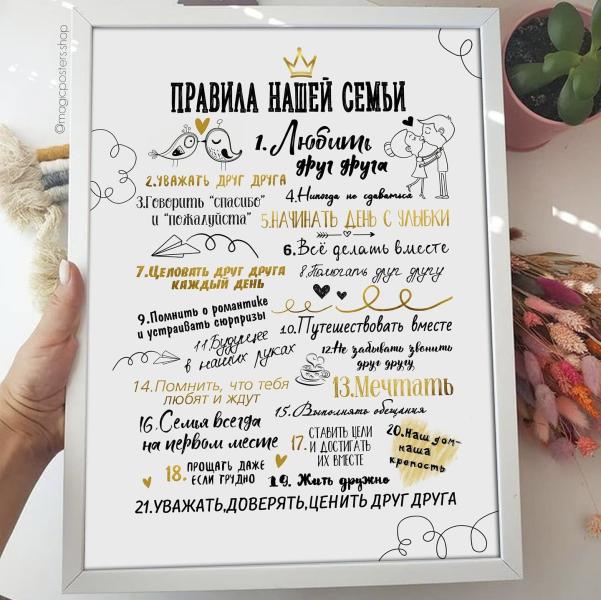 @magicposters.shop
ПРАВИЛА НАШЕЙ СЕМЬИ
1.Любить
друг друга
2.УВАЖАТЬ ДРУГ ДРУГА
3.Говорить "спасибо"
и "пожалуйста"
4.Никогда не сдаваться
5.НАЧИНАТЬ ДЕНЬ С УЛЫБКИ
6.Всё делать вместе
7.ЦЕЛОВАТЬ ДРУГ ДРУГА
КАЖДЫЙ ДЕНЬ
8.Помогать друг другу
9.Помнить о романтике
и устраивать сюрпризы
10.Путешествовать вместе
11.Будущее
в наших руках
12.Не забывать звонить
друг другу
13.Мечтать
14.Помнить, что тебя
любят и ждут
15.Выполнять обещания
16.Семья всегда
на первом месте
17.СТАВИТЬ ЦЕЛИ
И ДОСТИГАТЬ
ИХ ВМЕСТЕ
18.ПРОЩАТЬ ДАЖЕ
ЕСЛИ ТРУДНО
19.Жить дружно
20.Наш дом-
наша
крепость
21.УВАЖАТЬ,ДОВЕРЯТЬ,ЦЕНИТЬ ДРУГ ДРУГА